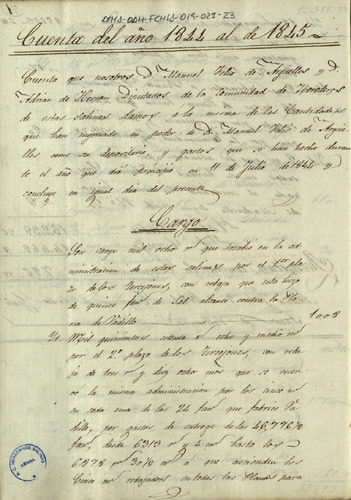 Cuenta del año 1844 al de 1845
Cuenta que nosotros D. Manuel Felix de Arguelles y D.
Adrian de Herran Diputados de la Comunidad de Herederos
de estas salinas damos a la misma de las Cantidades
que han ingresado en poder de D. Manuel Felix de Argue
lles como su depositario, y gastos que se han hecho duran
te el año que dio principio en 11 de Julio de 1844 y
concluye en igual dia del presente
Cargo
Son cargo mil ocho rs que en la ad
ministracion de estas salinas por el 1er pla
zo de los terrazgos, con rebaja que esta hizo
de quince fans de Sal alcance contra la
na de Padilla 1008
Mil quinientos ocho y medio rs
por el 2º plazo de los terrazgos, con reba
ja de tres rs y diez ocho mrs que se
la misma administracion por los cinco rs
en cada una de las 24 fans que fabricó Pa
dilla, por gastos de entroge de las 46,776½
fans desde 6313 rs y 4 mrs hasta los
6878 rs 30½ mrs a que ascienden los
cinco mrs rebajados en todas las Planas para